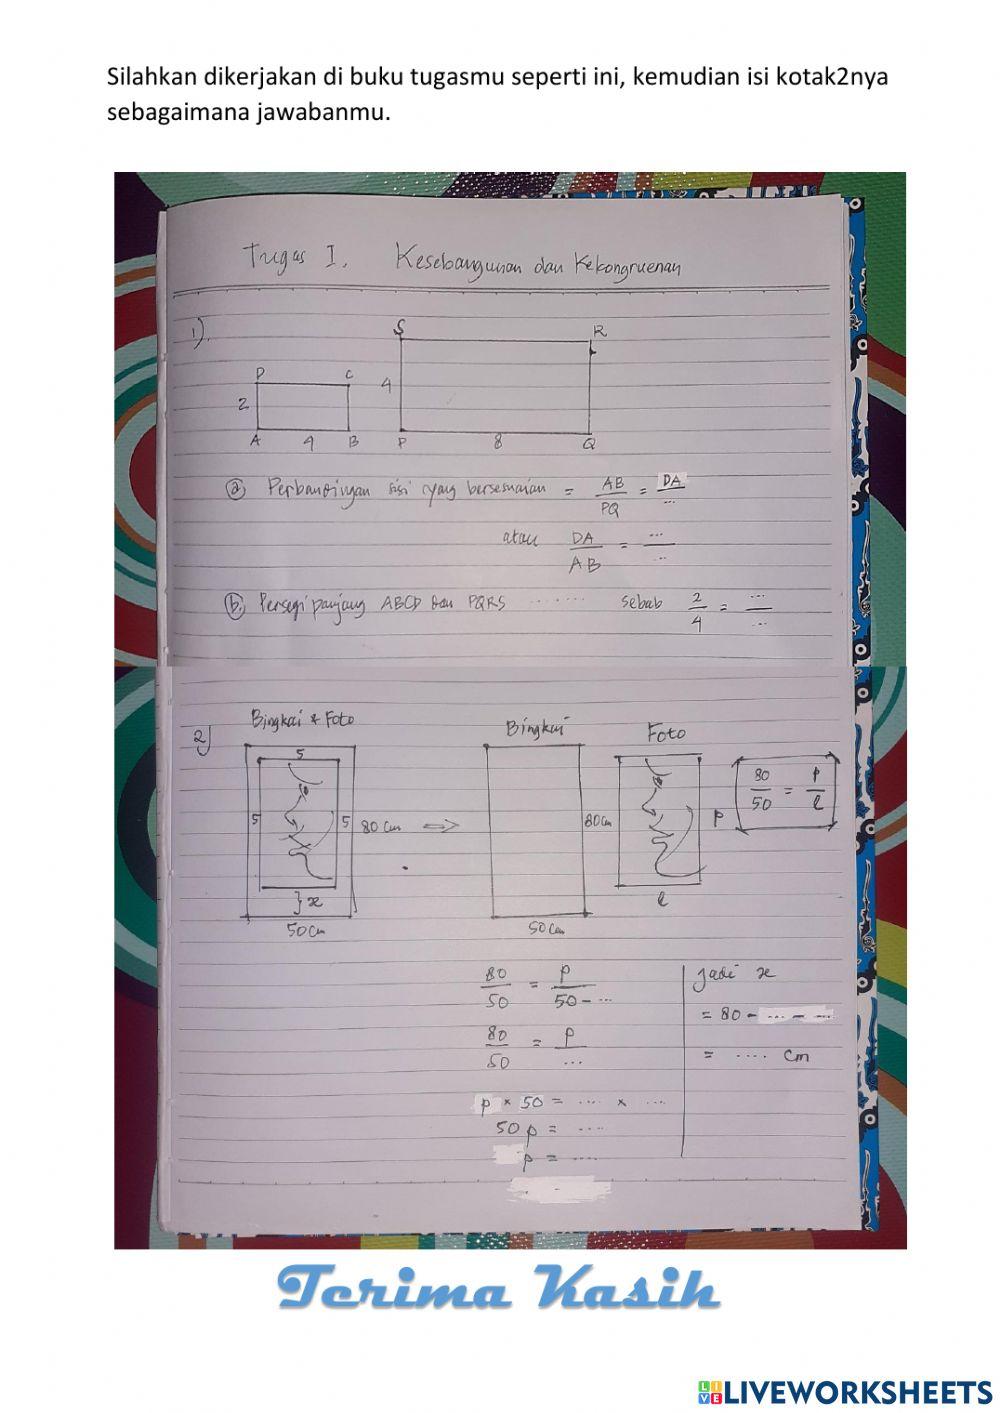 Silahkan dikerjakan di buku tugasmu seperti ini, kemudian isi kotak2nya
sebagaimana jawabanmu.
Tugas I. Kesebangunan dan Kekongruenan
1).
S R
D C 4
2
A 4 B P 8 Q
a) Perbandingan sisi yang bersesuaian = AB/PQ = DA/...
atau DA/AB = .../...
b) Persegi panjang ABCD dan PQRS ....... sebab 2/4 = .../...
2) Bingkai & Foto Bingkai Foto
5 80/50 = p/l
5 5 80 cm ⇒ 80cm p
} x l
50 cm 50 cm
80/50 = p/50 - ... Jadi x
= 80 - ... - ...
80/50 = p/... = .... cm
p × 50 = .... × ...
50 p = ....
p = ....
Terima Kasih
LIVE LIVEWORKSHEETS